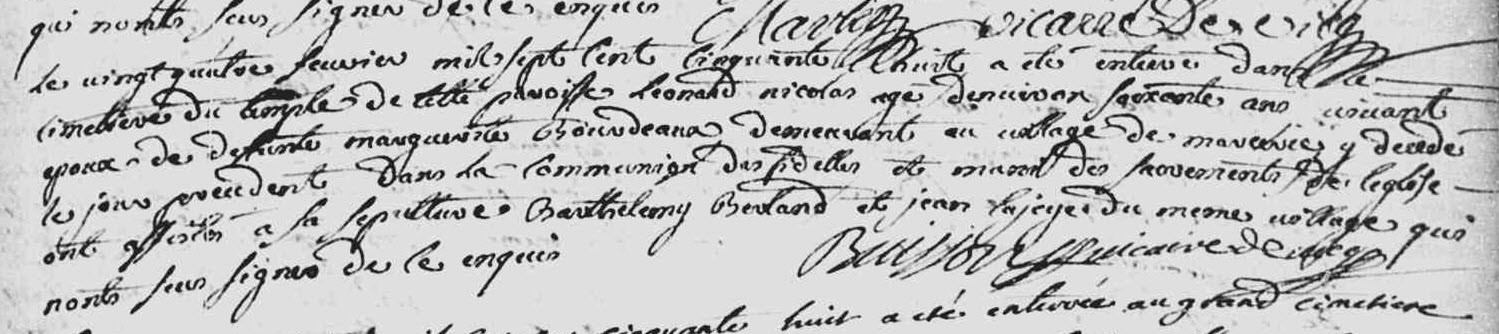 qui nonts seus signer de ce enquis vicaire De
le vingt quatre feuvrier mil sept cent cinquante huit a eté enterré dans le
cimetiere du temple de cette paroisse Leonard nicolas agé denuiron soixante ans viuant
epoux de defunte marguerite Bourdeaux demeurant au village de y decedé
le jour precedent dans la communion des fidelles et muni des sacrements de leglise
ont assistés a sa sepulture Barthelemy Berland et jean du meme village qui
nonts seus signer de ce enquis Buisson vicaire de
cinquante huit a eté enterrée au grand cimetiere